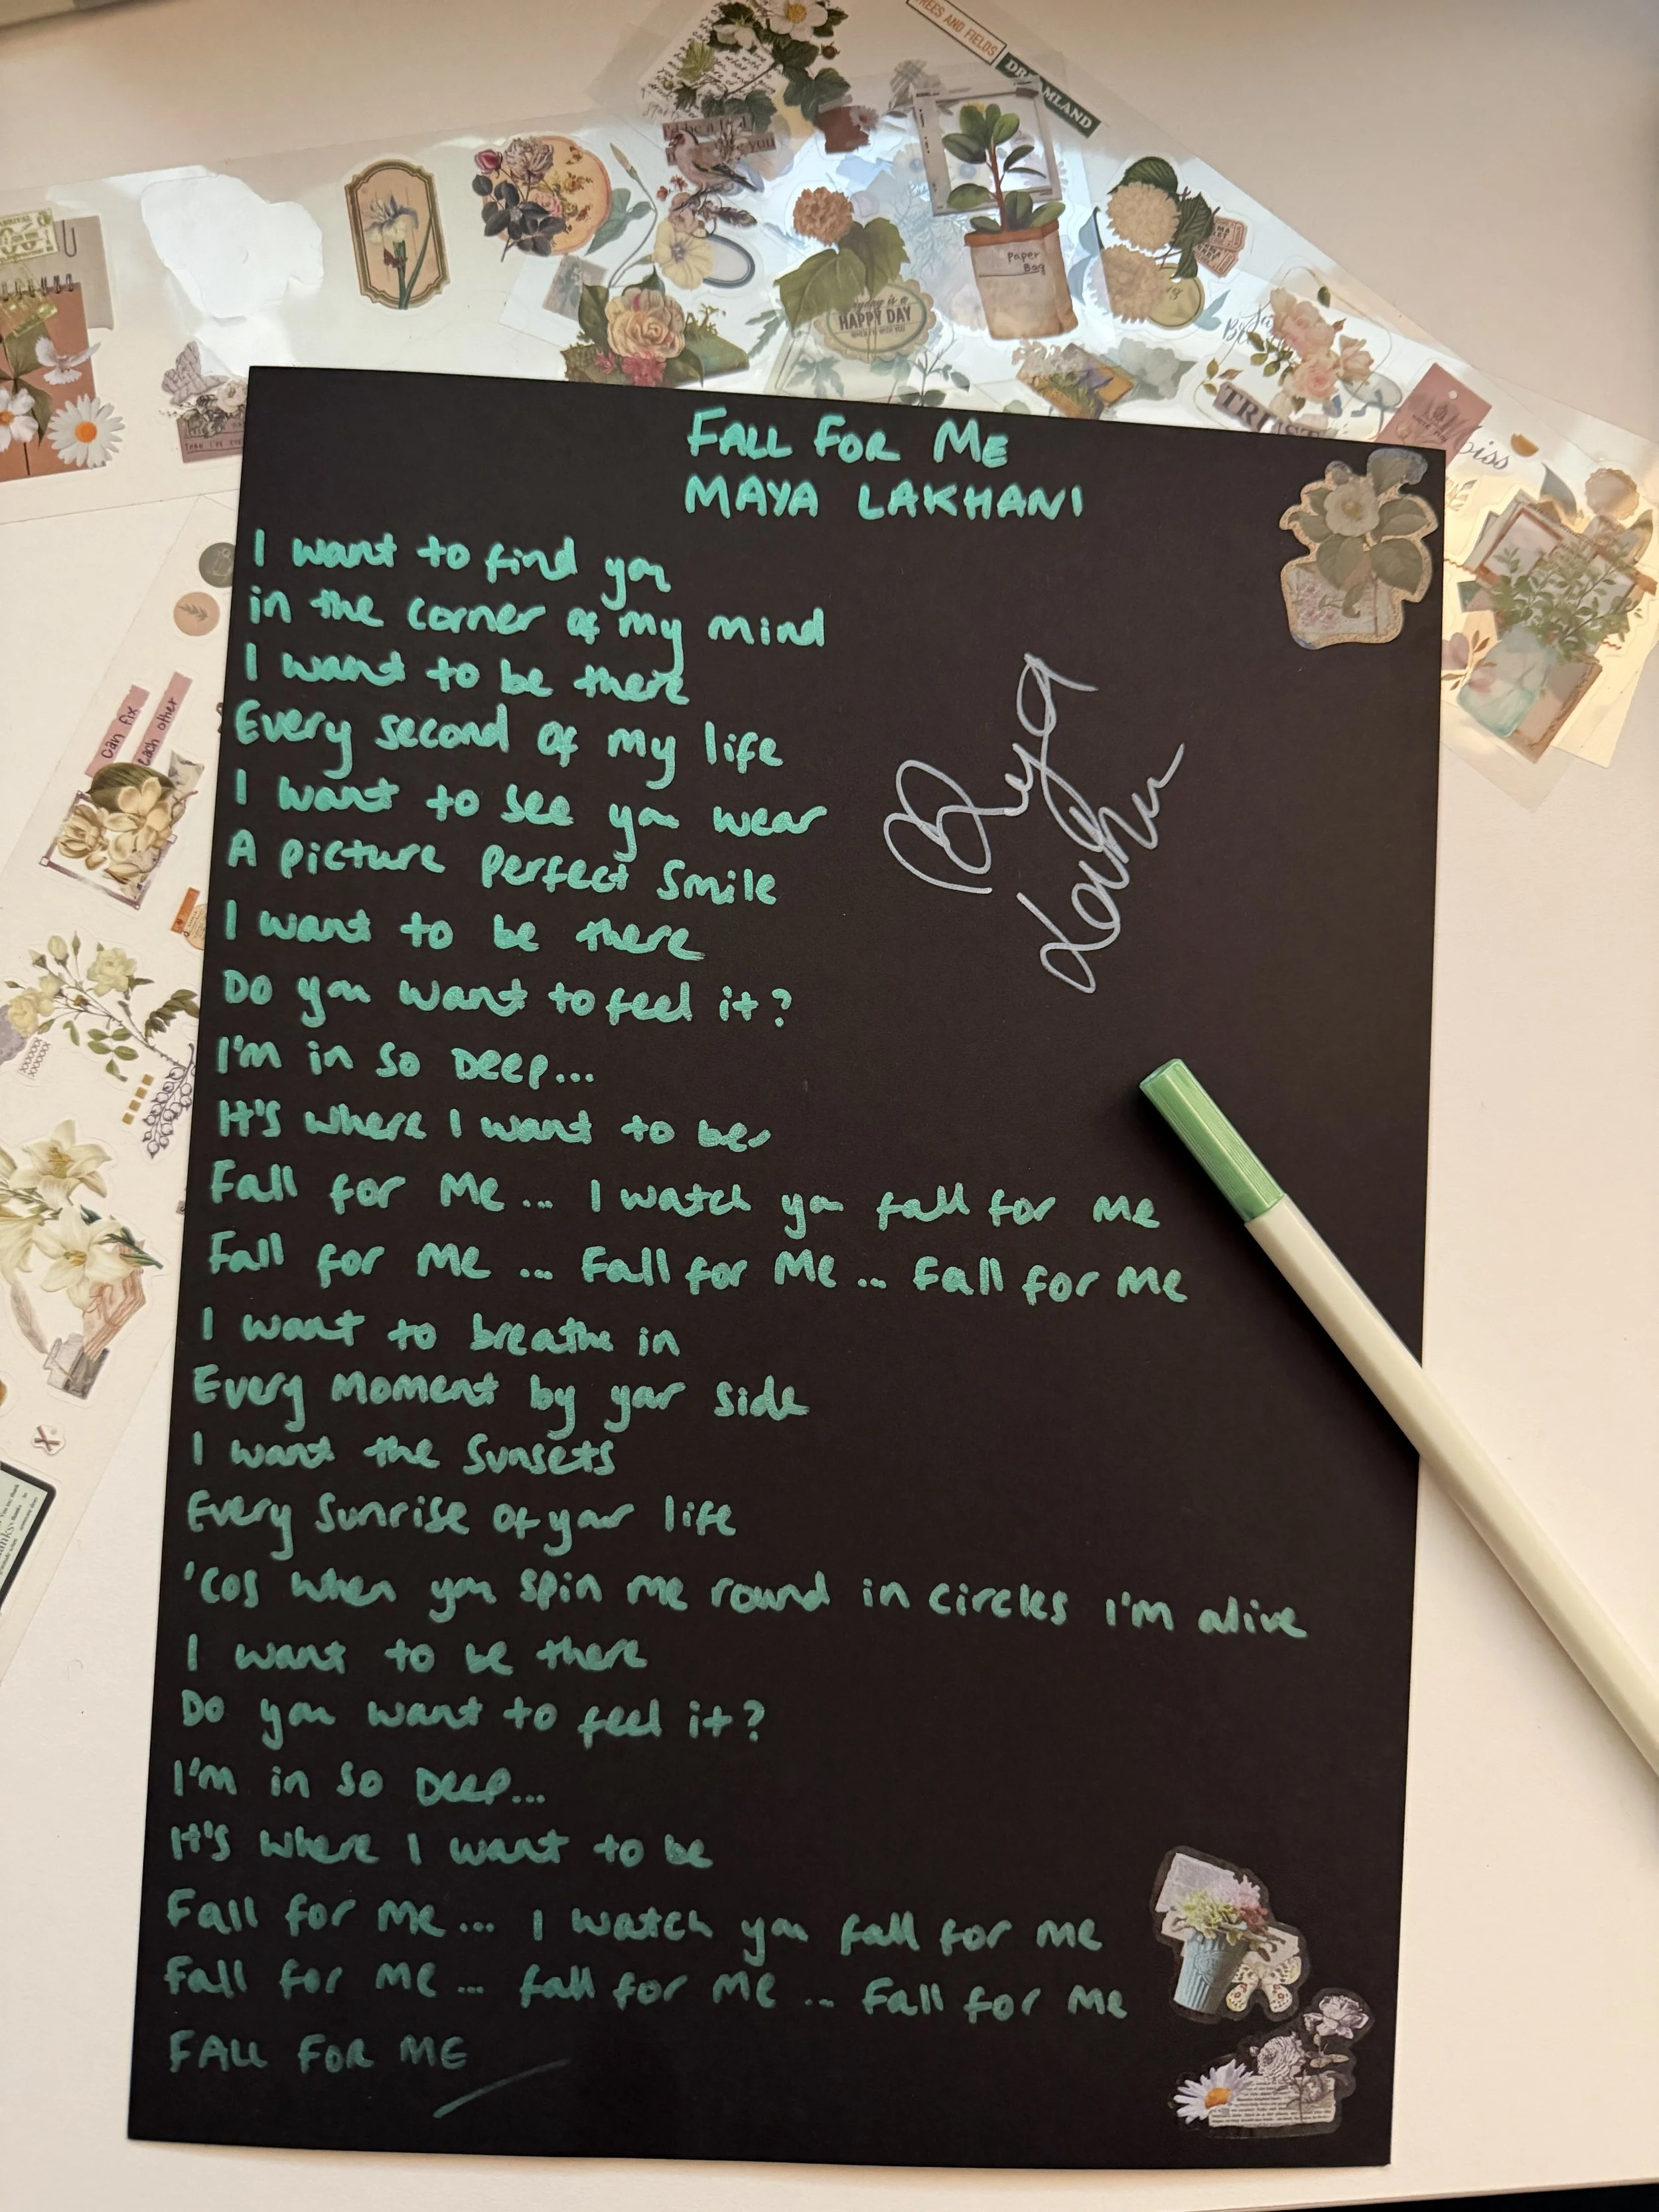 TREES AND FIELDS
DREAMLAND
Paper
Bag
HAPPY DAY
can fix
each other
FALL FOR ME
MAYA LAKHANI
I want to find you
in the corner of my mind
I want to be there
Every second of my life
I want to see you wear
A picture perfect smile
I want to be there
Do you want to feel it?
I'm in so Deep...
It's where I want to be
Fall for Me... I watch you fall for me
Fall for Me ... Fall for Me ... Fall for Me
I want to breathe in
Every Moment by your side
I want the Sunsets
Every Sunrise of your life
'Cos when you spin me round in circles I'm alive
I want to be there
Do you want to feel it?
I'm in so Deep...
It's where I want to be
Fall for Me... I watch you fall for me
Fall for Me ... fall for Me ... Fall for Me
FALL FOR ME